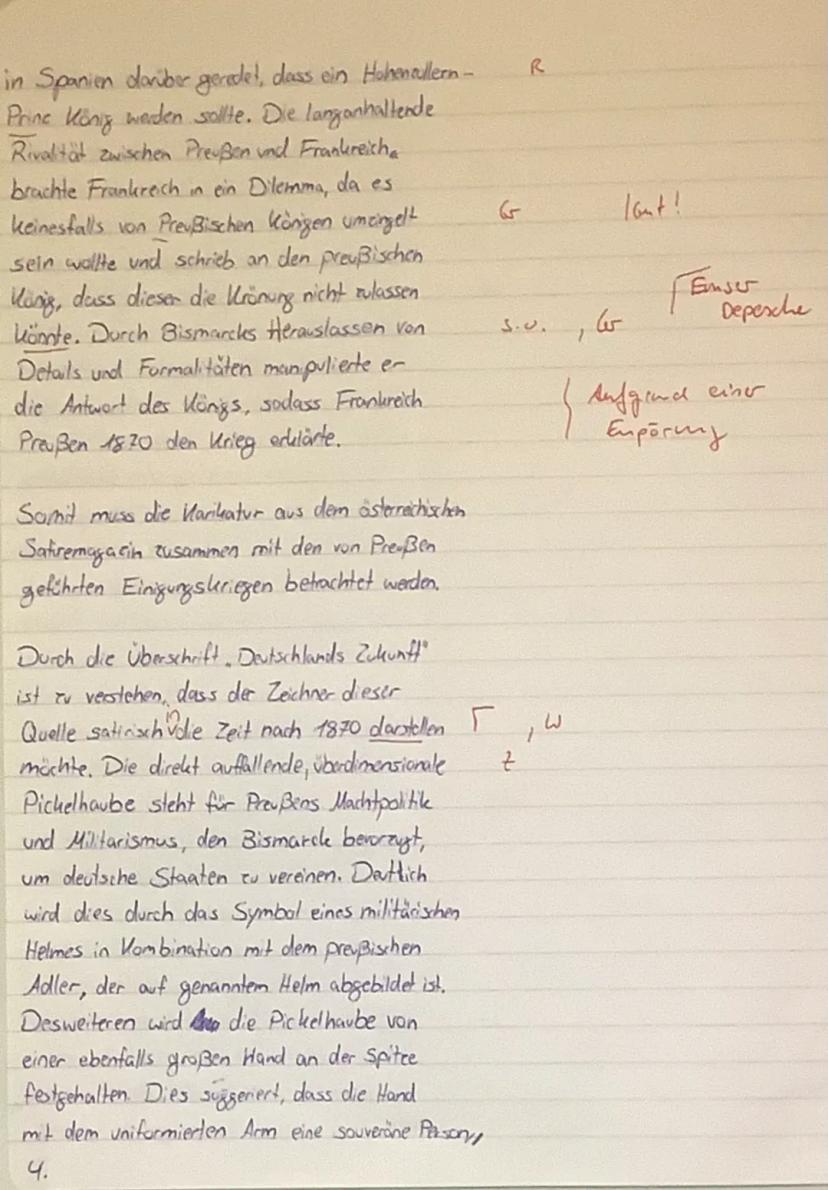 in Spanien darüber geredet, dass ein Hohenzollern- R
Prinz König werden sollte. Die langanhaltende
Rivalität zwischen Preußen und Frankreich
brachte Frankreich in ein Dilemma, da es
keinesfalls von Preußischen Königen umzingelt Gr
sein wollte und schrieb an den preußischen
König, dass dieser die Krönung nicht zulassen Emser Depesche
könnte. Durch Bismarcks Herauslassen von s.o. , Gr
Details und Formalitäten manipulierte er
die Antwort des Königs, sodass Frankreich Aufgrund einer
Preußen 1870 den Krieg erklärte. Empörung
Somit muss die Karikatur aus dem österreichischen
Satiremagazin zusammen mit den von Preußen
geführten Einigungskriegen betrachtet werden.
Durch die Überschrift „Deutschlands Zukunft"
ist zu verstehen, dass der Zeichner dieser
Quelle satirisch in die Zeit nach 1870 darstellen Γ , W
möchte. Die direkt auffallende, überdimensionale Z
Pickelhaube steht für Preußens Machtpolitik
und Militarismus, den Bismarck bevorzugt,
um deutsche Staaten zu vereinen. Deutlich
wird dies durch das Symbol eines militärischen
Helmes in Kombination mit dem preußischen
Adler, der auf genanntem Helm abgebildet ist.
Desweiteren wird die Pickelhaube von
einer ebenfalls großen Hand an der Spitze
festgehalten. Dies suggeriert, dass die Hand
mit dem uniformierten Arm eine souveräne Person,
4.